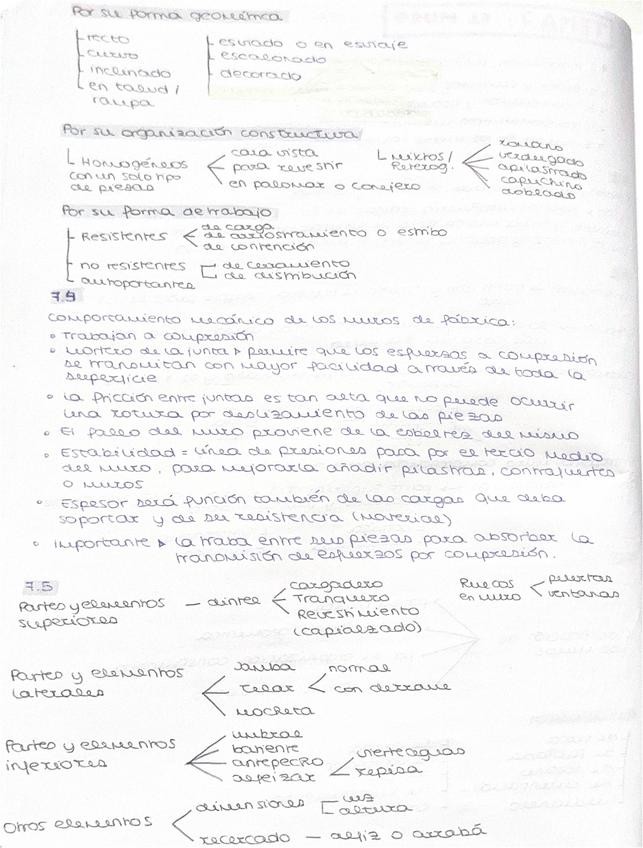 Por su forma geométrica
recto
curvo
inclinado
en talud /
rampa
esviado o en esviaje
escalonado
decorado
Por su organización constructiva
Homogéneos
con un solo tipo
de piezas
cara vista
para revestir
en palomar o conejero
mixtos /
Heterog.
romano
verdugado
apilastrado
capuchino
doblado
Por su forma de trabajo
Resistentes
de carga
de arriostramiento o estribo
de contención
no resistentes
autoportantes
de cerramiento
de distribución
7.4
Comportamiento mecánico de los muros de fábrica:
Trabajan a compresión
Mortero de la junta permite que los esfuerzos a compresión
se transmitan con mayor facilidad a través de toda la
superficie
La fricción entre juntas es tan alta que no puede ocurrir
una rotura por deslizamiento de las piezas
El fallo del muro proviene de la esbeltez del mismo
Estabilidad = línea de presiones pasa por el tercio medio
del muro, para mejorarla añadir pilastras, contrafuertes
o muros
Espesor será función también de las cargas que deba
soportar y de su resistencia (material)
importante la traba entre sus piezas para absorber la
transmisión de esfuerzos por compresión.
7.5
Partes y elementos
superiores
dintel
cargadero
Tranquero
Revestimiento
(capialzado)
Huecos
en muro
puertas
ventanas
Partes y elementos
laterales
Jamba
telar
mocheta
normal
con derrame
Partes y elementos
inferiores
umbral
batiente
antepecho
alfeizar
vierteaguas
repisa
Otros elementos
dimensiones
luz
altura
recercado — alfiz o arrabá